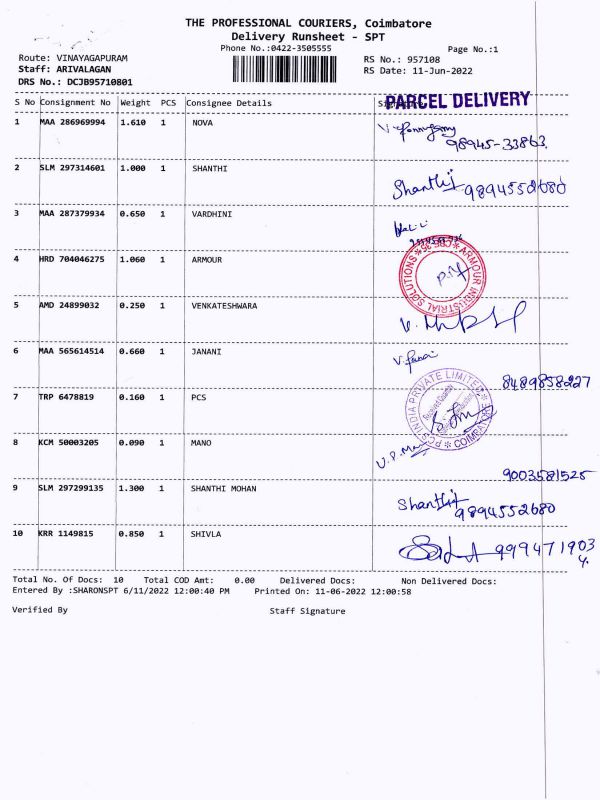 THE PROFESSIONAL COURIERS, Coimbatore
Delivery Runsheet - SPT
Phone No.:0422-3505555
Page No.:1
Route: VINAYAGAPURAM
RS No.: 957108
Staff: ARIVALAGAN
RS Date: 11-Jun-2022
DRS No.: DCJB95710801
PARCEL DELIVERY
S No Consignment No Weight PCS Consignee Details
1 MAA 286969994 1.610 1 NOVA
98945-33863
2 SLM 297314601 1.000 1 SHANTHI
Shanthi 9894552680
3 MAA 287379934 0.650 1 VARDHINI
4 HRD 704046275 1.060 1 ARMOUR
ARMOUR INDUSTRIAL SOLUTIONS
5 AMD 24899032 0.250 1 VENKATESHWARA
6 MAA 565614514 0.660 1 JANANI
8489858227
7 TRP 6478819 0.160 1 PCS
PCS INDIA PRIVATE LIMITED
COIMBATORE
8 KCM 50003205 0.090 1 MANO
9003581525
9 SLM 297299135 1.300 1 SHANTHI MOHAN
Shanthi 9894552680
10 KRR 1149815 0.850 1 SHIVLA
9994719034
Total No. Of Docs: 10 Total COD Amt: 0.00 Delivered Docs: Non Delivered Docs:
Entered By :SHARONSPT 6/11/2022 12:00:40 PM Printed On: 11-06-2022 12:00:58
Verified By Staff Signature